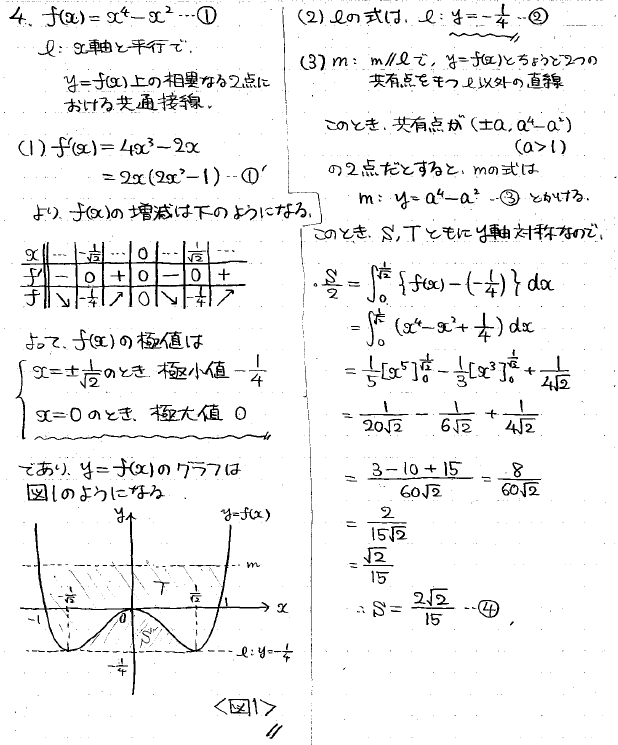 4. f(x) = x⁴ − x² … ①
l : x軸と平行で、
y = f(x) 上の相異なる2点に
おける共通接線.
(1) f'(x) = 4x³ − 2x
= 2x(2x² − 1) … ①'
より、f(x)の増減は下のようになる.
x | … | −1/√2 | … | 0 | … | 1/√2 | …
f' | − | 0 | + | 0 | − | 0 | +
f | ↘ | −1/4 | ↗ | 0 | ↘ | −1/4 | ↗
よって、f(x)の極値は
x = ±1/√2 のとき 極小値 −1/4
x = 0 のとき、極大値 0
であり、y = f(x)のグラフは
図1のようになる.
y y=f(x)
m
T
−1/√2 1/√2
−1 0 1 x
S
−1/4 l : y = −1/4
<図1>
(2) l の式は、l : y = −1/4 … ②
(3) m : m // l で、y = f(x)とちょうど2つの
共有点をもつ l 以外の直線
このとき、共有点が (±a, a⁴ − a²)
(a > 1)
の2点だとすると、mの式は
m : y = a⁴ − a² … ③ とかける.
このとき、S, T ともに y軸対称なので、
・S/2 = ∫₀^{1/√2} {f(x) − (−1/4)} dx
= ∫₀^{1/√2} (x⁴ − x² + 1/4) dx
= 1/5 [x⁵]₀^{1/√2} − 1/3 [x³]₀^{1/√2} + 1/(4√2)
= 1/(20√2) − 1/(6√2) + 1/(4√2)
= (3 − 10 + 15)/(60√2) = 8/(60√2)
= 2/(15√2)
= √2/15
∴ S = 2√2/15 … ④ ,